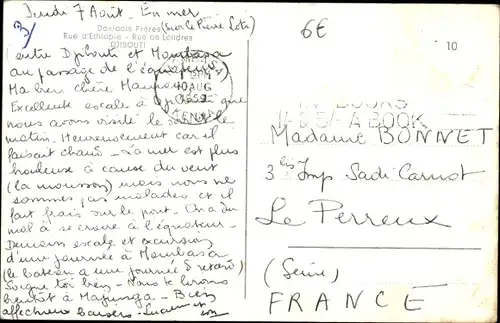 Jeudi 7 Août - En mer
(sur le Pierre Loti)
Doxiadis Frères
Rue d'Ethiopie - Rue de Londres
DJIBOUTI
entre Djibouti et Mombasa
au passage de l'équateur
Ma bien chère Maman
Excellente escale à Djibouti que
nous avons visité le matin
matin. Heureusement car il
faisait chaud - La mer est plus
houleuse à cause du vent
(la mousson) mais nous ne
sommes pas malades et il
fait frais sur le pont. On a du
mal à se croire à l'équateur.
Demain escale et excursion
d'une journée à Mombasa
(le bateau a une journée de retard)
Soigne toi bien - Nous te lirons
bientôt à Majunga - Bien
affectueux baisers - Lucien et
MOMBASA
10 AUG
1959
KENYA
6€
10
HOURS
A BOOK
Madame BONNET
3 bis Imp Sadi Carnot
Le Perreux
(Seine)
FRANCE